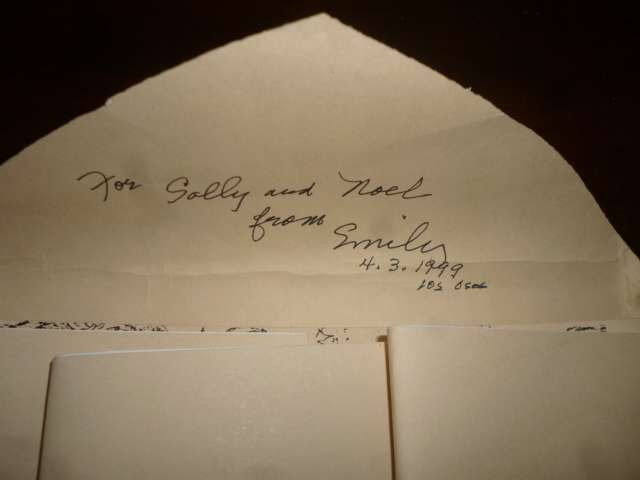 For Sally and Noel
from
Emily
4. 3. 1999
Los Osos